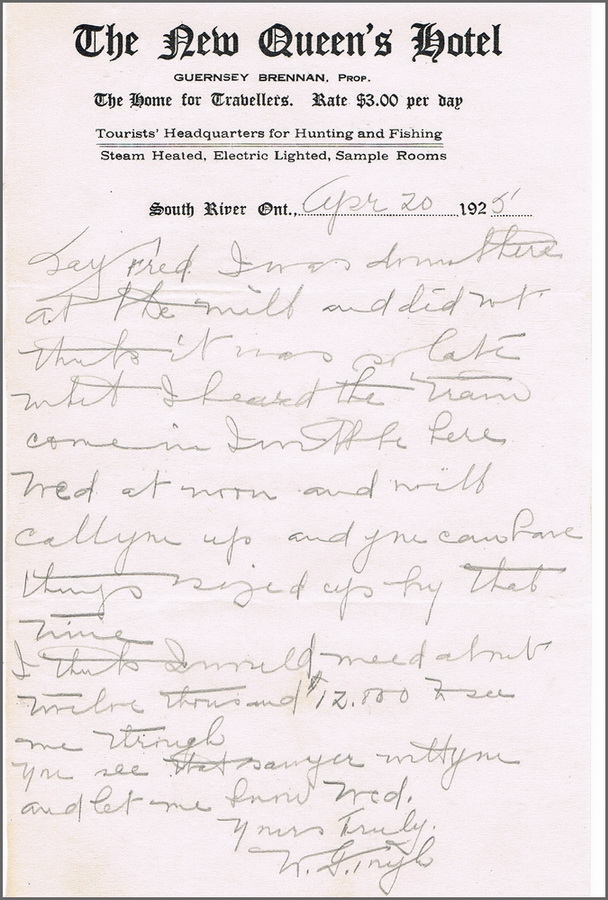 The New Queen's Hotel
GUERNSEY BRENNAN, PROP.
The Home for Travellers. Rate $3.00 per day
Tourists' Headquarters for Hunting and Fishing
Steam Heated, Electric Lighted, Sample Rooms
South River Ont., Apr 20 1925
Say Fred I was down there
at the mill and did not
think it was so late
what I heard the train
come in I will be here
Wed at noon and will
call you up and you can have
things sized up by that
time
I think I would need about
twelve thousand $12.000 to see
me through
You see that sawyer with you
and let me know Wed.
Yours Truly.
W. G.